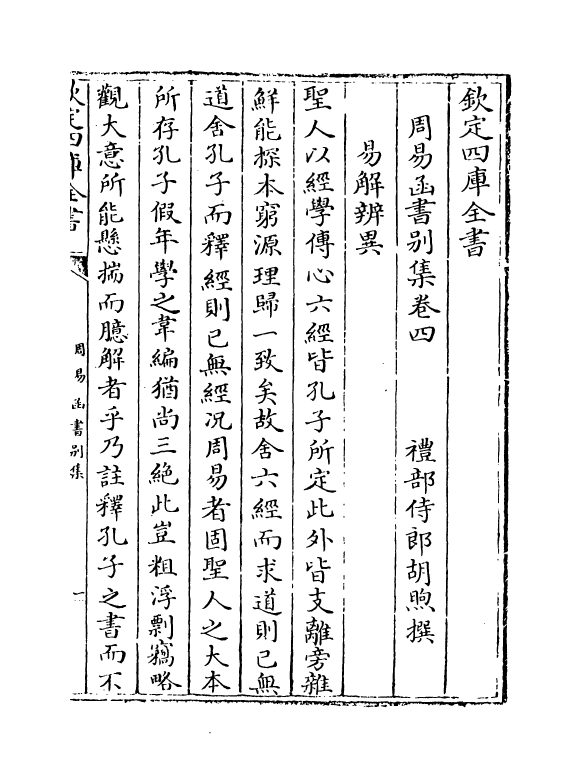 欽定四庫全書
周易函書别集卷四
禮部侍郎胡煦撰
易解辨異
聖人以經學傳心六經皆孔子所定此外皆支離旁雜
鮮能探本窮源理歸一致矣故舍六經而求道則已無
道舍孔子而釋經則已無經况周易者固聖人之大本
所存孔子假年學之韋編猶尚三絶此豈粗浮剽竊略
觀大意所能懸揣而臆解者乎乃註釋孔子之書而不
欽定四庫全書
周易函書别集
一